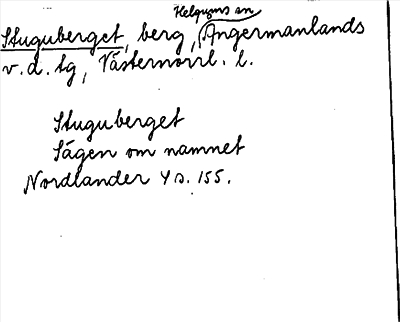 Helgums sn
Stuguberget, berg, Ångermanlands
v. d. tg, Västernorrl. l.
Stuguberget
Sägen om namnet
Nordlander 4 s. 155.